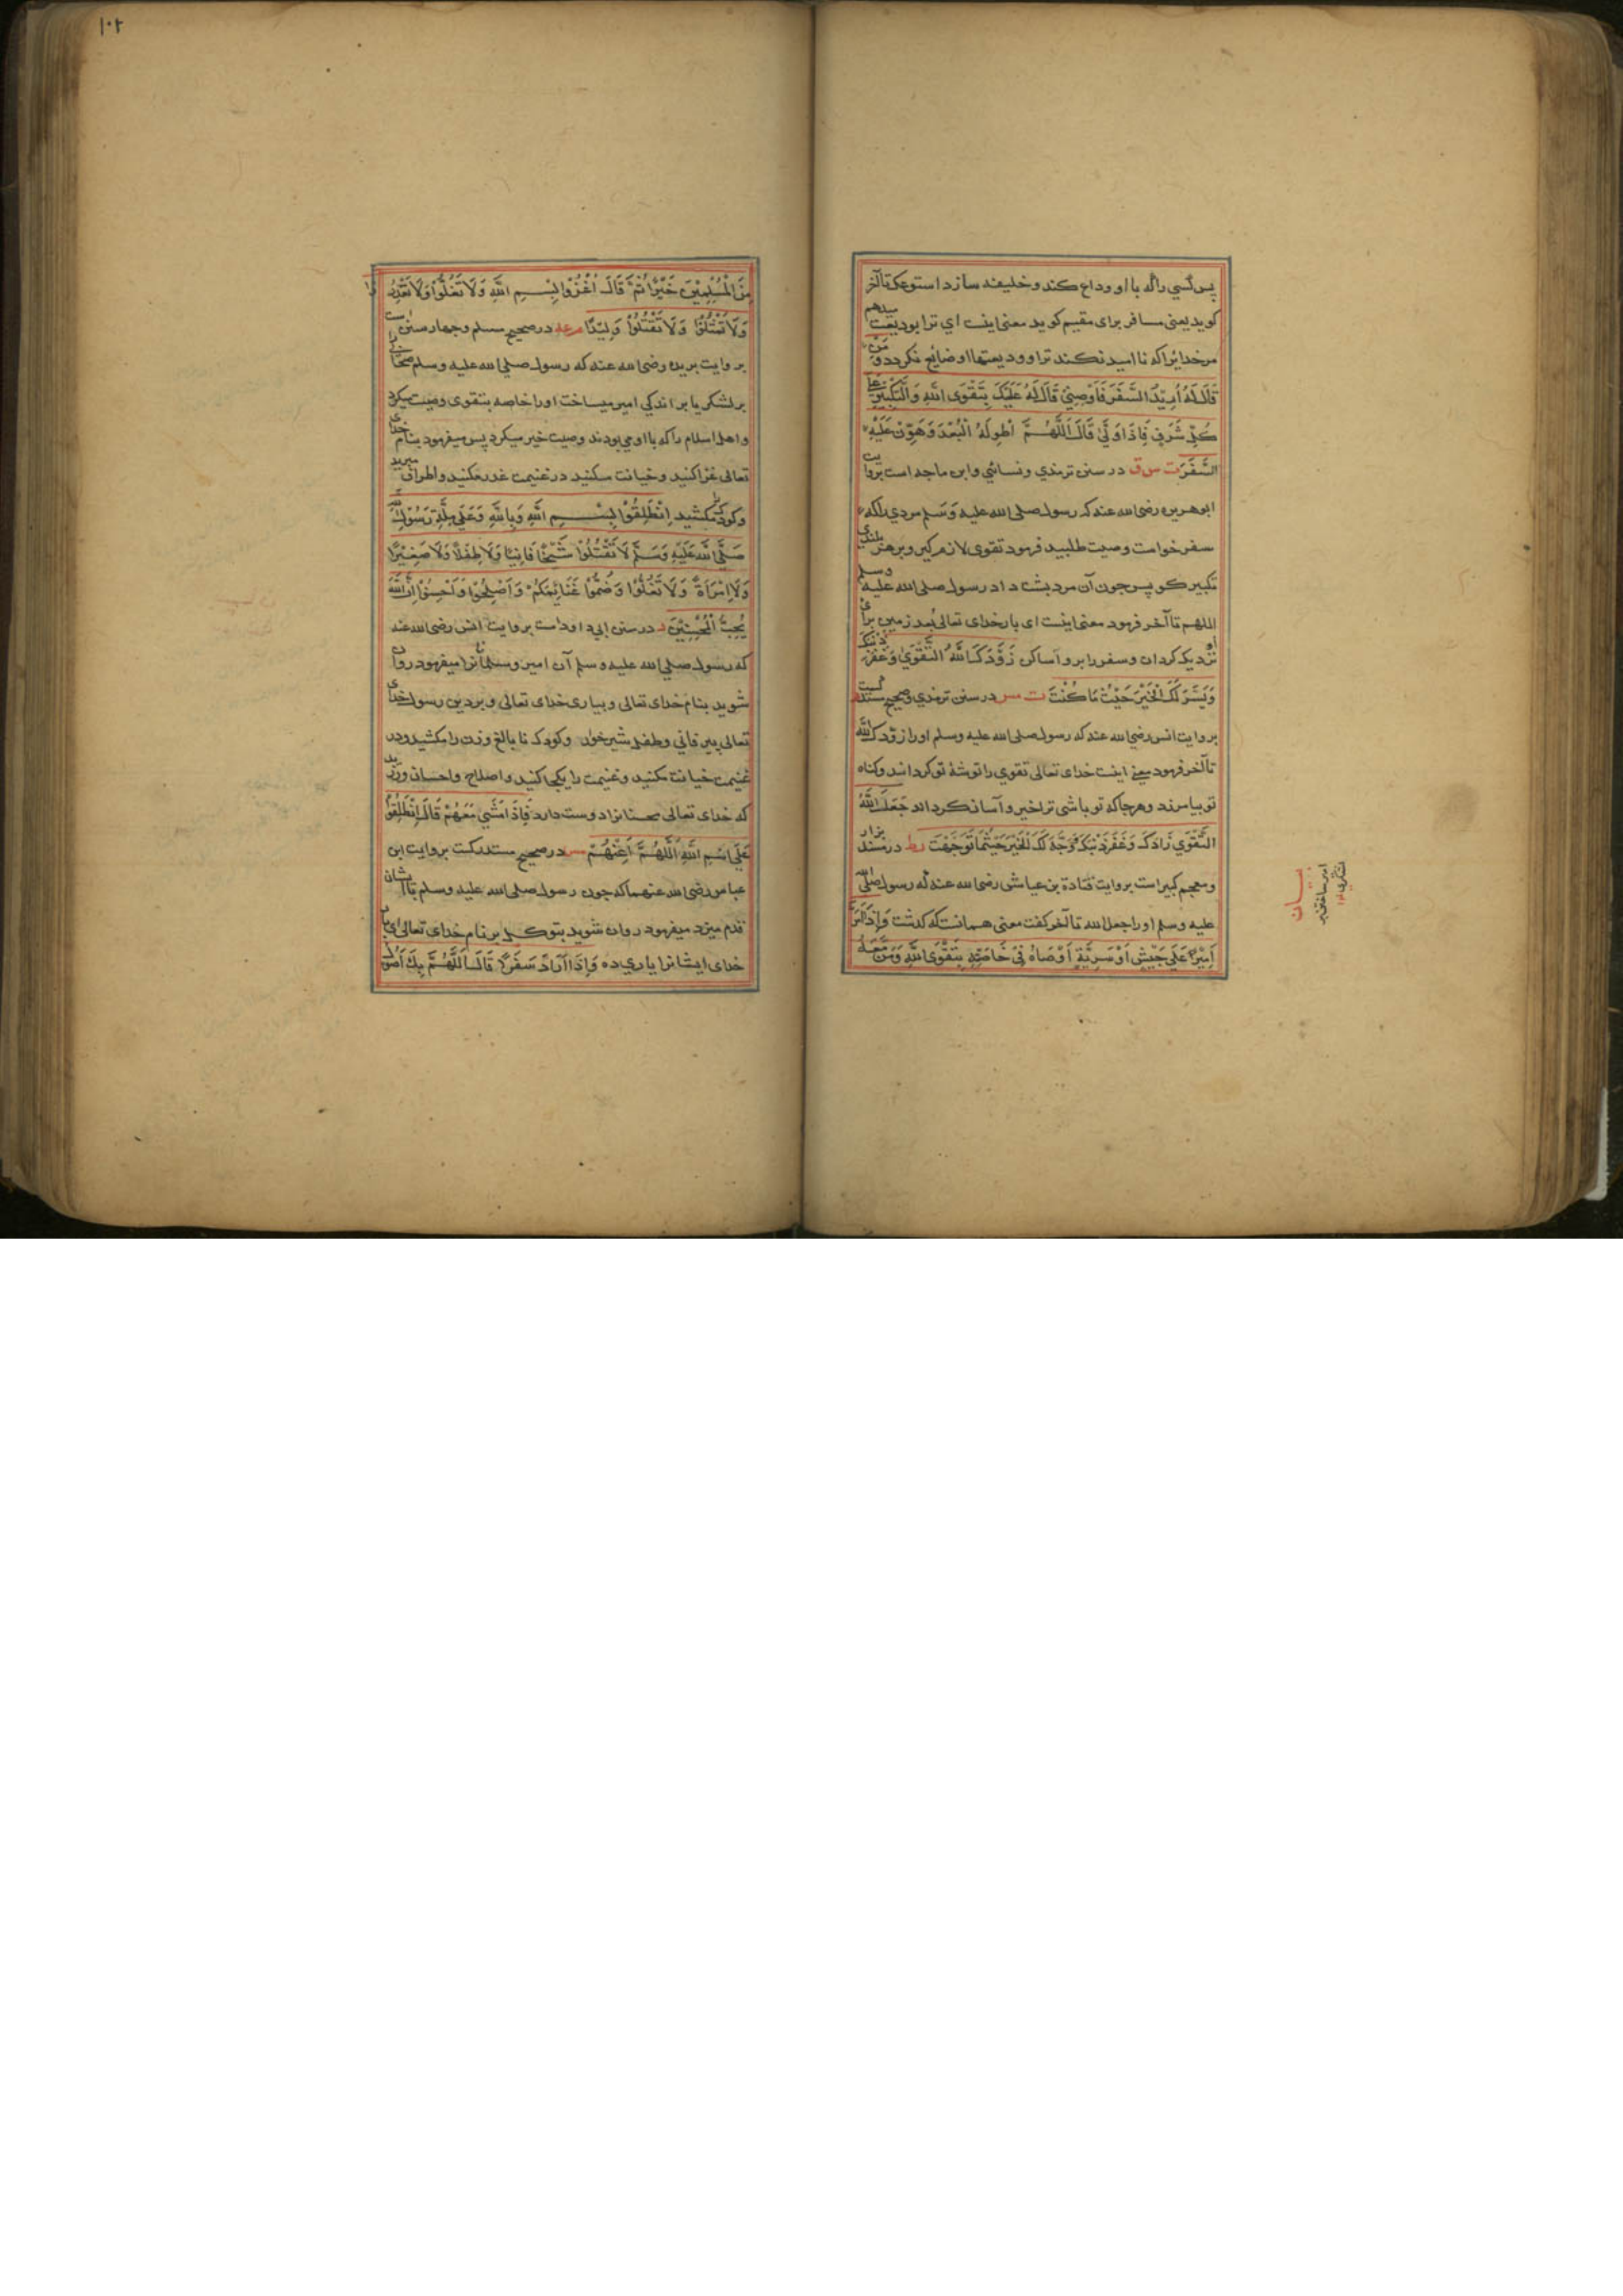 پس کسی را که با او وداع کند و خلیفه سازد استودعک تا آخر
کوید یعنی مسافر برای مقیم کوید معنی اینست ای ترا بودیعت میدهم
مر خدایرا که نا امید نکند ترا و ودیعتها او ضایع نکردد وَمَنْ
قَالَ لَهُ اُرِيْدُ السَّفَرَ فَاَوْصِنِيْ قَالَ لَهُ عَلَيْكَ بِتَقْوَى اللّٰهِ وَالتَّكْبِيْرِ عَلَى
كُلِّ شَرَفٍ فَاِذَا وَلّٰى قَالَ اَللّٰهُمَّ اطْوِ لَهُ الْبُعْدَ وَهَوِّنْ عَلَيْهِ
السَّفَرَ ت س ق در سنن ترمذي و نسائي و ابن ماجه است بروایت
ابوهریره رضی الله عنه که رسول صلی الله علیه وسلم مردي را که
سفر خواست وصیت طلبید فرمود تقوی لازم کیر و بر هر بلندی
تکبیر کو پس چون آن مرد پشت داد رسول صلی الله علیه وسلم
اللهم تا آخر فرمود معنی اینست ای بار خدای تعالی بُعد زمین برای او
نزدیک کردان و سفر را برو آسان کن زَوَّدَكَ اللّٰهُ التَّقْوٰى وَغَفَرَ ذَنْبَكَ
وَيَسَّرَ لَكَ الْخَيْرَ حَيْثُ مَا كُنْتَ ت مس در سنن ترمذي و صحیح مستدرکست
بروایت انس رضی الله عنه که رسول صلی الله علیه وسلم او را زوّدک الله
تا آخر فرمود معنی اینست خدای تعالی تقوي را توشۀ تو کرداند و کناه
تو بیامرزد و هر جا که تو باشی ترا خیر و آسان کرداند جَعَلَ اللّٰهُ
التَّقْوٰى زَادَكَ وَغَفَرَ ذَنْبَكَ وَوَجَّهَ لَكَ الْخَيْرَ حَيْثُمَا تَوَجَّهْتَ ر ط در مسند بزار
و معجم کبیر است بروایت قتادة بن عیاش رضی الله عنه که رسول صلی الله
علیه وسلم او را جعل الله تا آخر کفت معنی همانست که کذشت وَاِذَا اَمَّرَ
اَمِيْرًا عَلٰى جَيْشٍ اَوْ سَرِيَّةٍ اَوْصَاهُ فِيْ خَاصَّتِهِ بِتَقْوَى اللّٰهِ وَمَنْ مَعَهُ
۱۰۲
مِنَ الْمُسْلِمِيْنَ خَيْرًا ثُمَّ قَالَ اغْزُوْا بِسْمِ اللّٰهِ وَلَا تَغُلُّوْا وَلَا تَغْدِرُوْا
وَلَا تَمْثُلُوْا وَلَا تَقْتُلُوْا وَلِيْدًا م عه در صحیح مسلم و چهار سنن است
بروایت بریده رضی الله عنه که رسول صلی الله علیه وسلم صحابی را
بر لشکر یا بر اندکی امیر میساخت او را خاصه بتقوی وصیت میکرد
و اهل اسلام را که با او می بودند وصیت خیر میکرد پس میفرمود بنام خدای
تعالی غزا کنید و خیانت مکنید در غنیمت غدر مکنید و اطراف مبرید
و کودک را مکشید اِنْطَلِقُوْا بِسْمِ اللّٰهِ وَبِاللّٰهِ وَعَلٰى مِلَّةِ رَسُوْلِ اللّٰهِ
صَلَّى اللّٰهُ عَلَيْهِ وَسَلَّمَ لَا تَقْتُلُوْا شَيْخًا فَانِيًا وَلَا طِفْلًا وَلَا صَغِيْرًا
وَلَا امْرَاَةً وَلَا تَغُلُّوْا وَضُمُّوْا غَنَائِمَكُمْ وَاَصْلِحُوْا وَاَحْسِنُوْا اِنَّ اللّٰهَ
يُحِبُّ الْمُحْسِنِيْنَ د در سنن ابي داود است بروایت انس رضی الله عنه
که رسول صلی الله علیه وسلم آن امیر و مسلمانانرا میفرمود روان
شوید بنام خدای تعالی و بیاری خدای تعالی و بر دین رسول خدای
تعالی پیر فانی و طفل شیرخوار و کودک نا بالغ و زن را مکشید و در
غنیمت خیانت مکنید و غنیمت را یکجا کنید و اصلاح و احسان ورزید
که خدای تعالی محسنانرا دوست دارد فَاِذَا مَشٰى مَعَهُمْ قَالَ انْطَلِقُوْا
عَلَى اسْمِ اللّٰهِ اَللّٰهُمَّ اَعِنْهُمْ مس در صحیح مستدرکست بروایت ابن
عباس رضی الله عنهما که چون رسول صلی الله علیه وسلم با ایشان
قدم میزد میفرمود روان شوید بتوکل بر نام خدای تعالی ای بار
خدای ایشانرا یاري ده وَاِذَا اَرَادَ سَفَرًا قَالَ اَللّٰهُمَّ بِكَ اَصُوْلُ